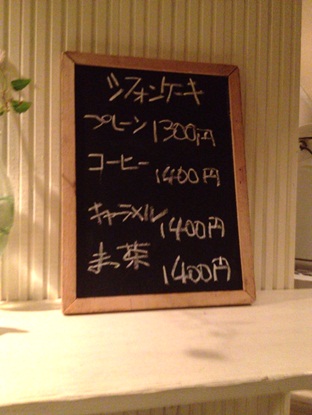 シフォンケーキ
プレーン 1300円
コーヒー 1400円
キャラメル 1400円
まっ茶 1400円